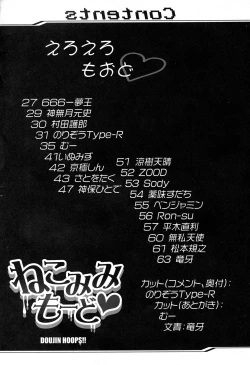 Contents
えろえろ
もおど♡
27 666一夢王
29 神無月元史
30 村田護郎
31 のりぞうType-R
35 むー
41 いぬみす
42 京極しん
43 さとをたく
47 神保ひとで
51 涼樹天晴
52 ZOOD
53 Sody
54 薬味すだち
55 ベンジャミン
56 Ron-su
57 平木直利
60 無私天使
61 松本規之
63 竜牙
ねこみみ
もーど♡
DOUJIN HOOPS!!
カット(コメント、奥付):
のりぞうType-R
カット(あとがき):
むー
文責:竜牙